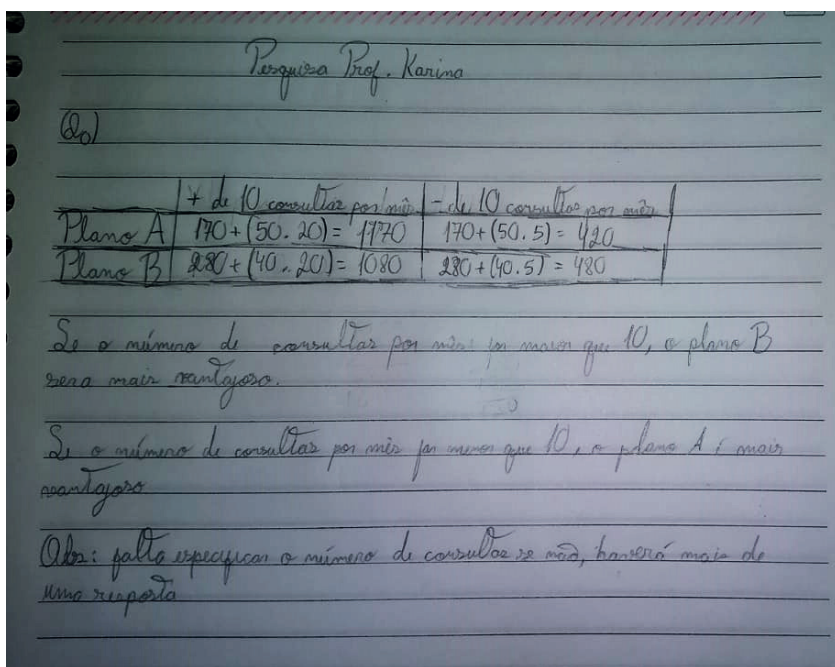 Pesquisa Prof. Karina
Q₀)
+ de 10 consultas por mês | - de 10 consultas por mês
Plano A | 170+(50.20)= 1170 | 170+(50.5)= 420
Plano B | 280+(40.20)= 1080 | 280+(40.5) = 480
Se o número de consultas por mês for maior que 10, o plano B
sera mais vantajoso.
Se o número de consultas por mês for menor que 10, o plano A é mais
vantajoso
Obs: falta especificar o número de consultas se não, haverá mais de
uma resposta